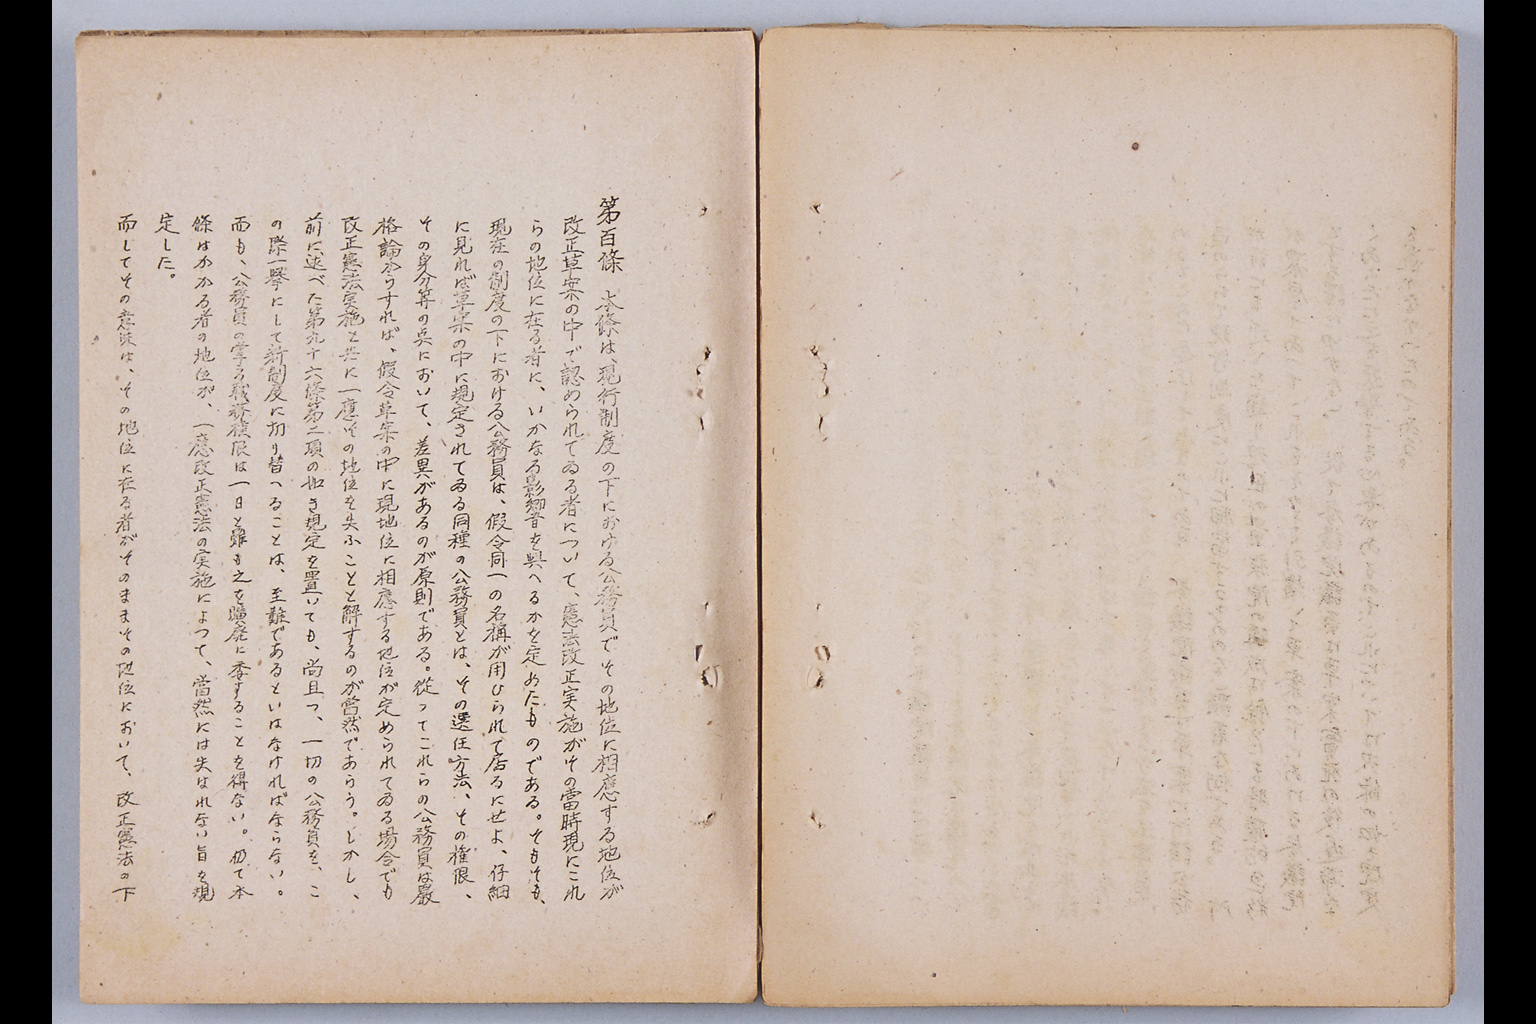 第百條　本條は、現行制度の下における公務員でその地位に相應する地位が
改正草案の中で認められてゐる者について、憲法改正実施がその當時現にこれ
らの地位に在る者に、いかなる影響を與へるかを定めたものである。そもそも、
現在の制度の下における公務員は、假令同一の名稱が用ひられて居るにせよ、仔細
に見れば草案の中に規定されてゐる同種の公務員とは、その選任方法、その権限、
その身分等の点において、差異があるのが原則である。從ってこれらの公務員は嚴
格論からすれば、假令草案の中に現地位に相應する地位が定められてゐる場合でも
改正憲法実施と共に一應その地位を失ふことと解するのが當然であらう。しかし、
前に述べた第九十六條第二項の如き規定を置いても、尚且つ、一切の公務員を、こ
の際一擧にして新制度に切り替へることは、至難であるといはなければならない。
而も、公務員の掌る職務権限は一日と雖も之を曠廃に委することを得ない。仍て本
條はかかる者の地位が、一應改正憲法の実施によつて、當然には失はれない旨を規
定した。
而してその意味は、その地位に在る者がそのままその地位において、改正憲法の下